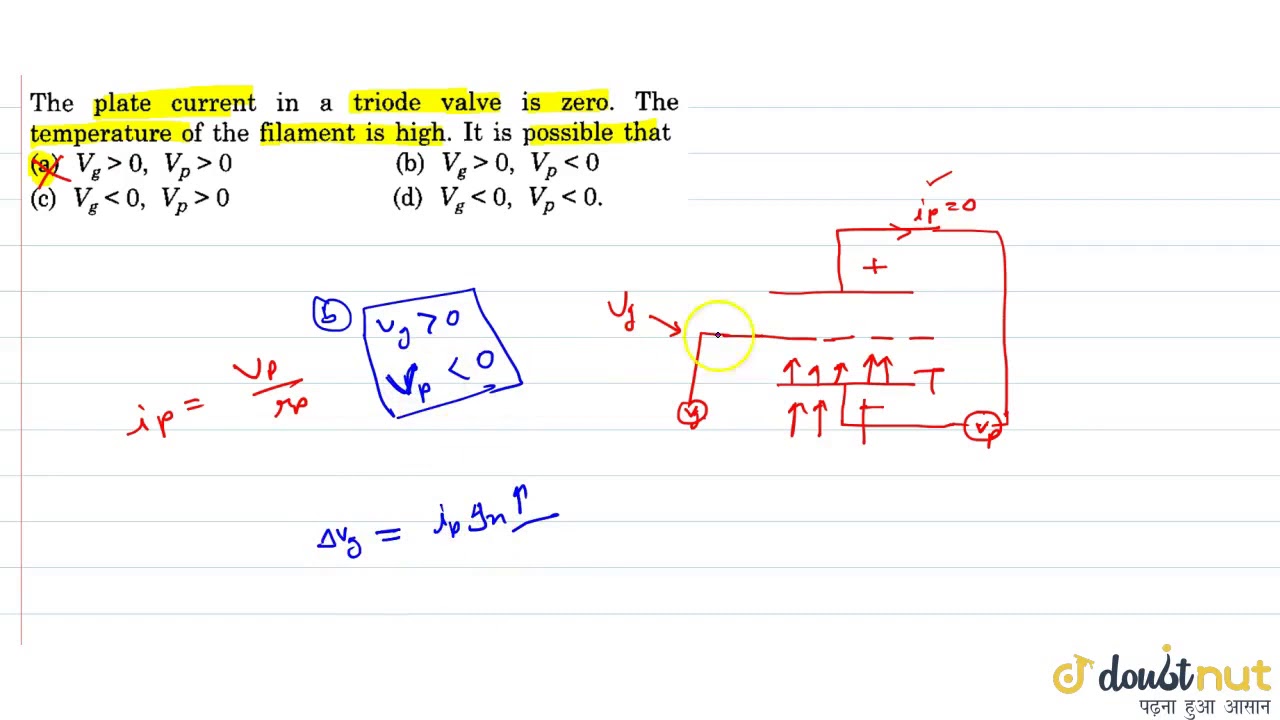 The plate current in a triode valve is zero. The
temperature of the filament is high. It is possible that
(a) V_g > 0, V_p > 0 (b) V_g > 0, V_p < 0
(c) V_g < 0, V_p > 0 (d) V_g < 0, V_p < 0.
i_p = 0
+
V_g
b
V_g > 0
V_p < 0
i_p = V_p / r_p
T
V_g
V_p
ΔV_g = i_p g_m ↑
doubtnut
पढ़ना हुआ आसान